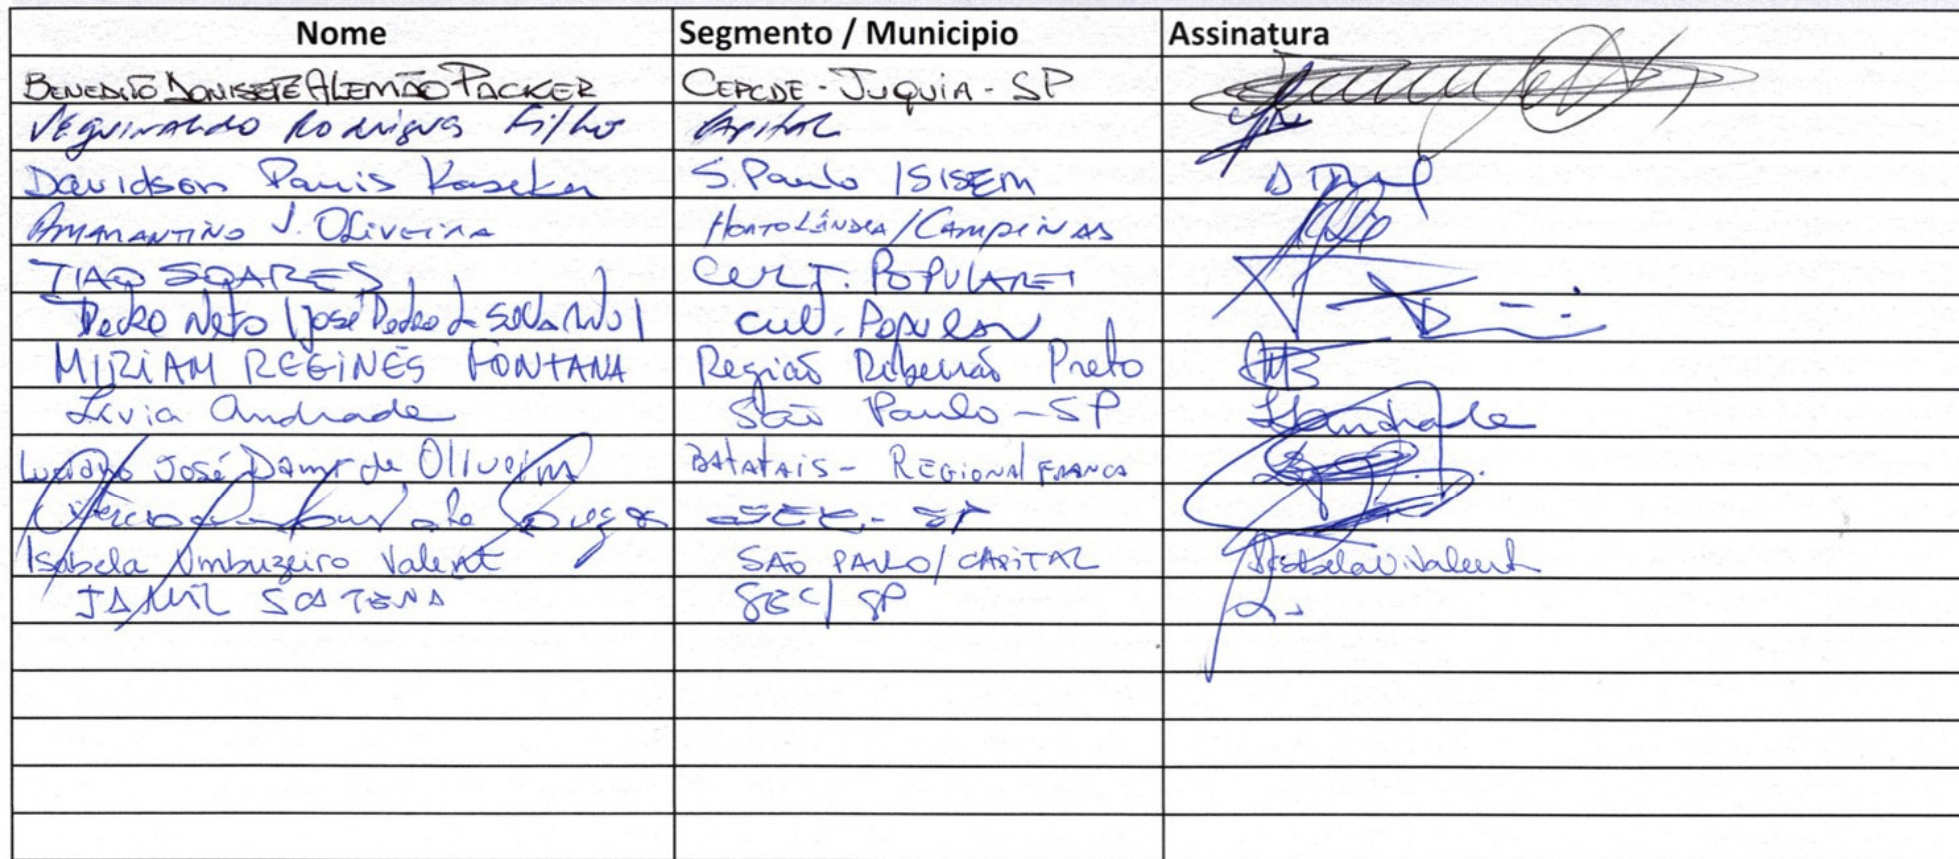 Nome Segmento / Municipio Assinatura
BENEDITO DONISETE ALEMÃO PACKER CEPCDE - JUQUIA - SP
Rodrigues Filho Capital
Davidson Panis Kaseker S. Paulo / SISEM
AMARANTINO J. OLIVEIRA HORTOLÂNDIA / CAMPINAS
TIAO SOARES CULT. POPULARES
Pedro Neto (José Pedro da Silva Neto) Cult. Popular
MIRIAM REGINÊS FONTANA Região Ribeirão Preto
Livia Andrade São Paulo - SP LAndrade
Luciano José Dami de Oliveira BATATAIS - REGIONAL FRANCA
SEC - SP
Isabela Umbuzeiro Valent SAO PAULO / CAPITAL Isabela U. Valent
JAMIL SCATENA SEC / SP